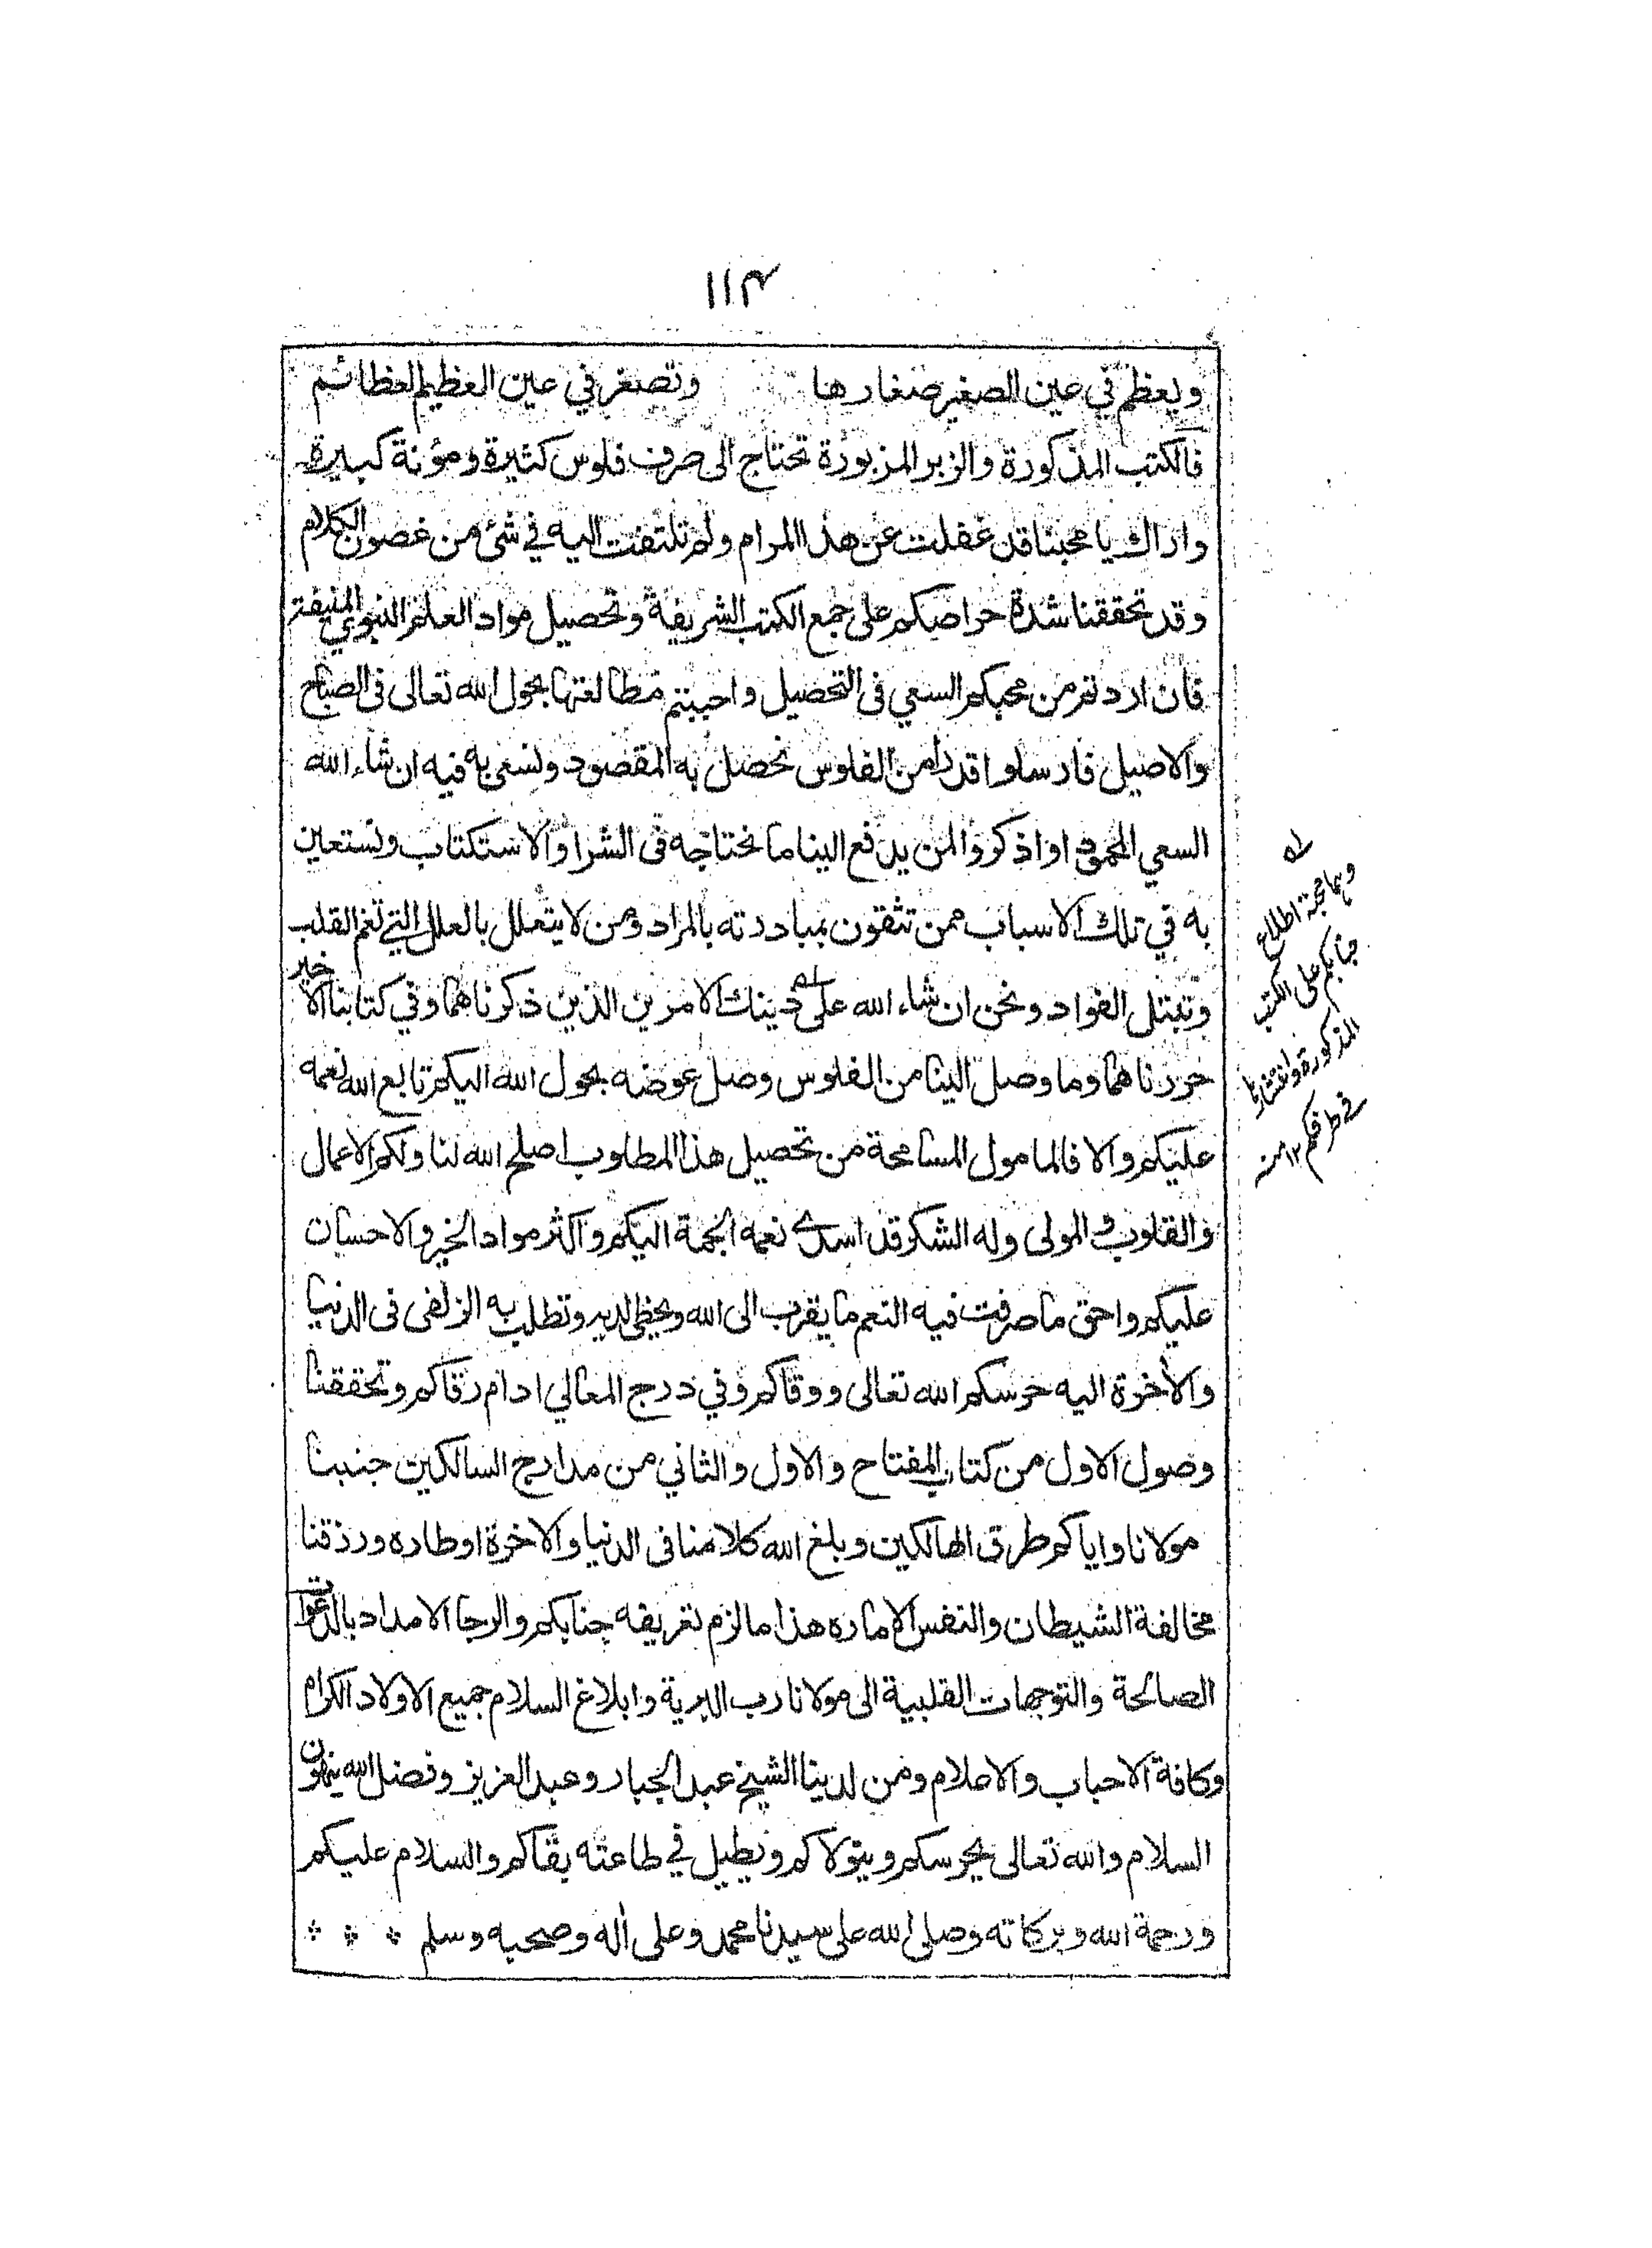 ١١٣
ويعظم في عين الصغير صغارها وتصغر في عين العظيم العظائم
فالكتب المذكورة والزبر المزبورة تحتاج الى صرف فلوس كثيرة ومؤنة كبيرة
واراك يا محبنا قد غفلت عن هذا المرام ولم تلتفت اليه في شئ من غصون الكلام
وقد تحققنا شدة حراصكم على جمع الكتب الشريفة وتحصيل مواد العلم النبوي المنيفة
فان اردتم من محبكم السعي في التحصيل واحببتم مطالعتها بحول الله تعالى في الصباح
والاصيل فارسلوا قدرا من الفلوس نحصل به المقصود ونسعى به فيه ان شاء الله
السعي المحمود او اذكروا لمن يدفع الينا ما نحتاجه في الشرا والاستكتاب ونستعين
به في تلك الاسباب ممن تثقون بمبادرته بالمراد ومن لا يتعلل بالعلل التي تغم القلب
وتبتل الفواد ونحن ان شاء الله على دينك الامرين الذين ذكرناهما وفي كتابنا الاخير
حررناهما وما وصل الينا من الفلوس وصل عوضه بحول الله اليكم تابع الله نعمه
عليكم والا فالمامول المسامحة من تحصيل هذا المطلوب اصلح الله لنا ولكم الاعمال
والقلوب والمولى وله الشكر قد اسدى نعمه الجمة اليكم واكثر مواد الخير والاحسان
عليكم واحق ما صرفت فيه النعم ما يقرب الى الله ويحظي لديه وتطلب به الزلفى في الدنيا
والأخرة اليه حرسكم الله تعالى ووقاكم وفي درج المعالي ادام رقاكم وتحققنا
وصول الاول من كتاب المفتاح والاول والثاني من مدارج السالكين جنبنا
مولانا واياكم طرق الهالكين وبلغ الله كلا منا في الدنيا والاخرة اوطاره ورزقنا
مخالفة الشيطان والنفس الاماره هذا ما لزم تعريفه جنابكم والرجا الامداد بالدعوات
الصالحة والتوجهات القلبية الى مولانا رب البرية وابلاغ السلام جميع الاولاد الكرام
وكافة الاحباب والاعلام ومن لدينا الشيخ عبد الجبار وعبد العزيز وفضل الله ينهون
السلام والله تعالى يحرسكم ويتولاكم ويطيل في طاعته بقاكم والسلام عليكم
ورحمة الله وبركاته وصلى الله على سيدنا محمد وعلى أله وصحبه وسلم
وهما محبة اطلاع
جنابكم على الكتب
المذكورة وانتشارها
في طرفكم ١٢ منه